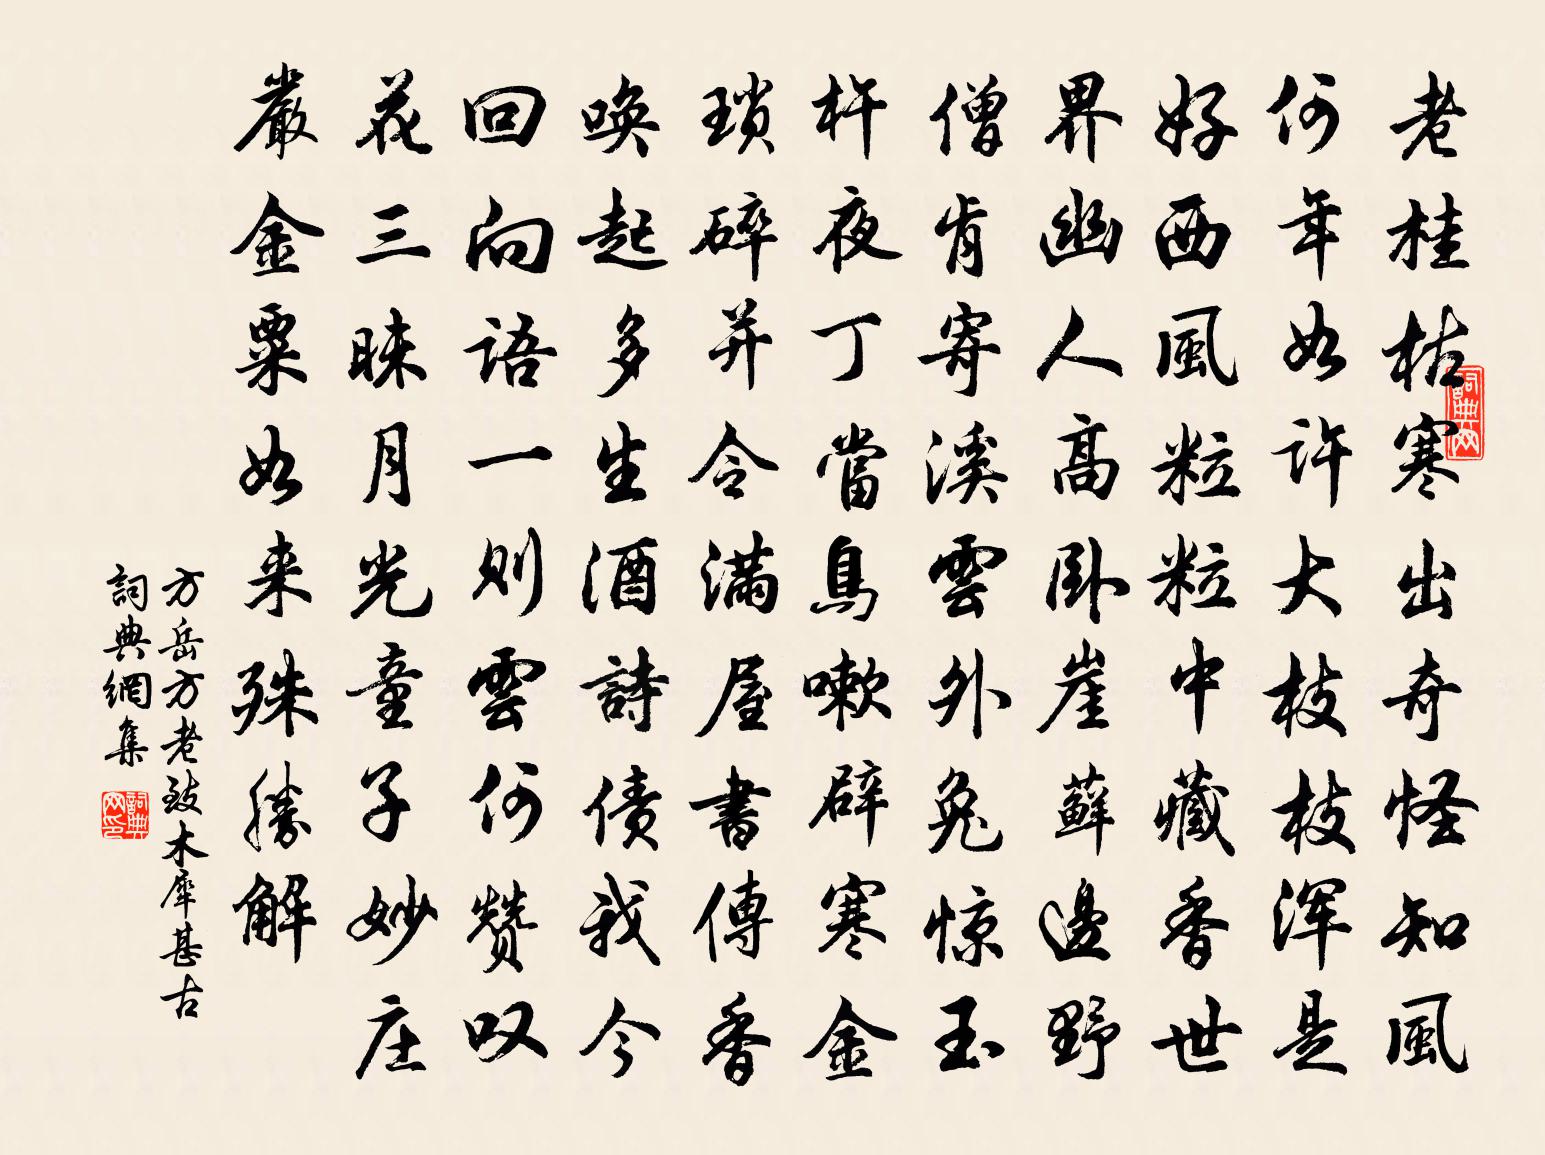 老桂枯寒出奇怪知風
何年如許大枝枝浑是
好西風粒粒中藏香世
界幽人高卧崖蘚邊野
僧肯寄溪雲外兔惊玉
杵夜丁當鳥嗽辟寒金
瑣碎并令滿屋書傳香
喚起多生酒詩債我今
回向語一则雲何赞叹
花三昧月光童子妙庄
嚴金粟如来殊勝解
方岳方老致木犀甚古
詞典網集
詞典网
詞典网印